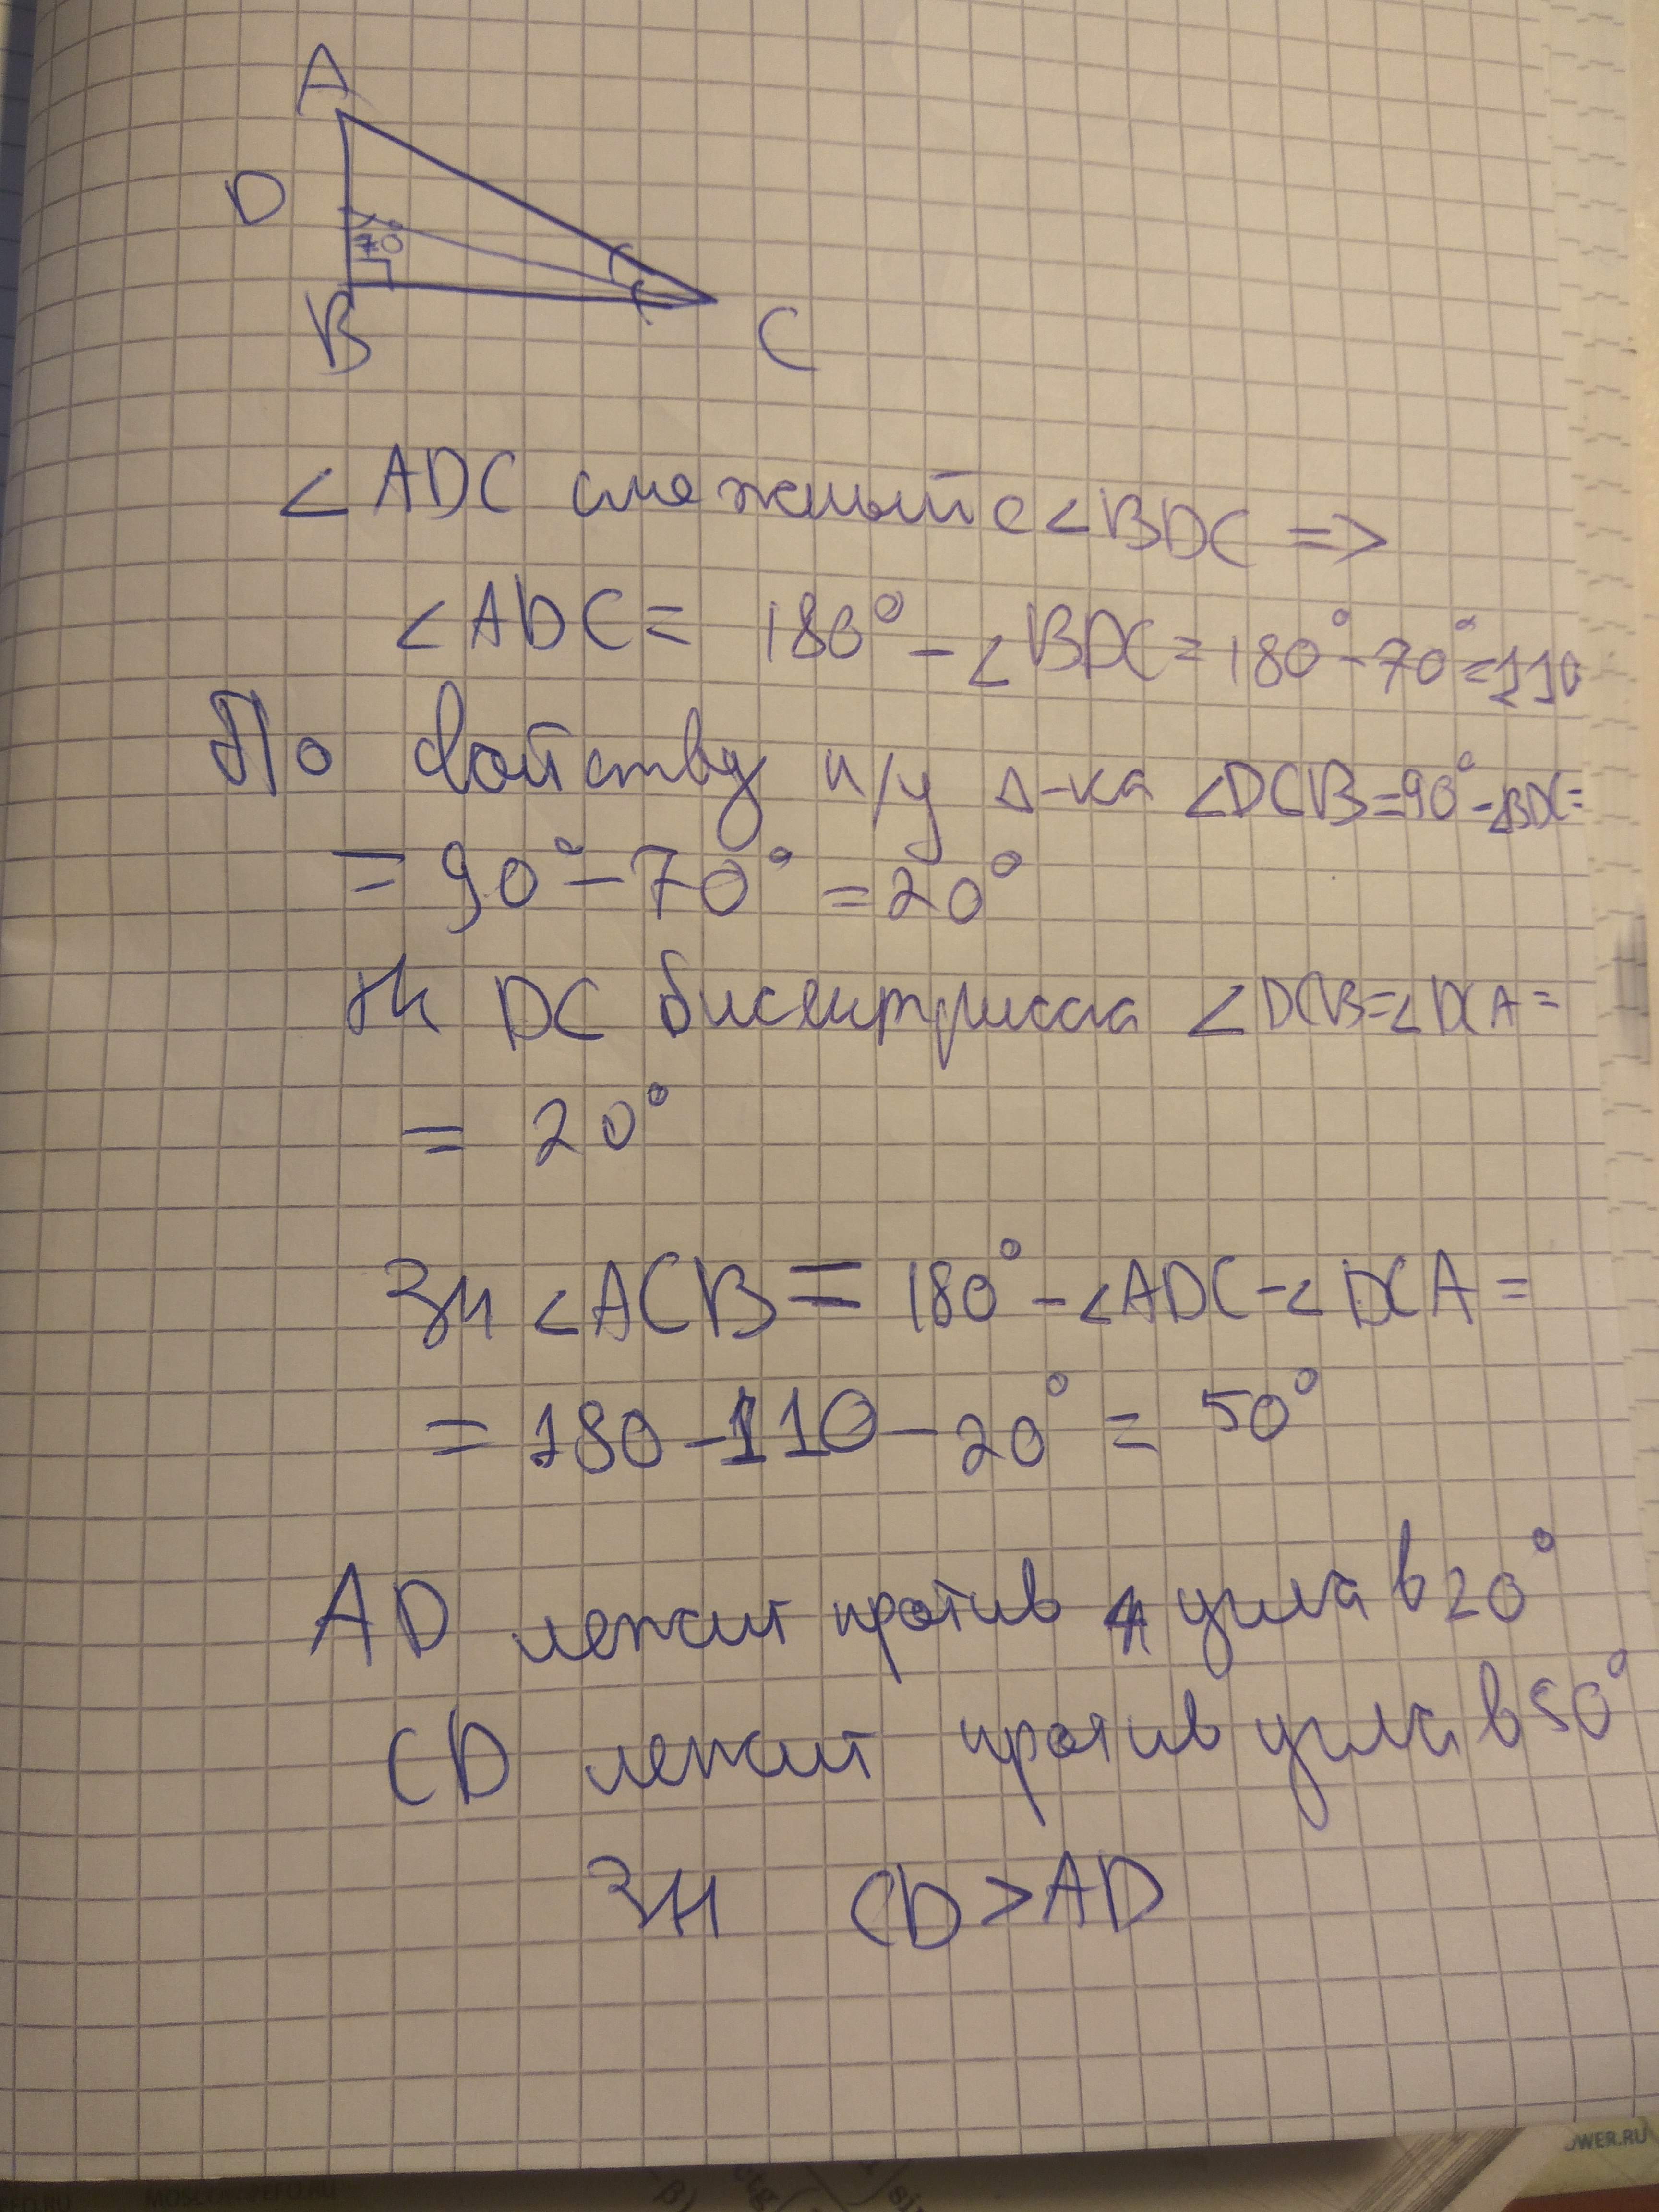 A
D
70°
B
C
∠ADC смежный с ∠BDC =>
∠ADC = 180° - ∠BDC = 180° - 70° = 110
По свойству п/у Δ-ка ∠DCB = 90° - ∠BDC =
= 90° - 70° = 20°
тк DC бисектрисса ∠DCB = ∠DCA =
= 20°
Зн ∠ACB = 180° - ∠ADC - ∠DCA =
= 180 - 110 - 20° = 50°
AD лежит против угла в 20°
CD лежит против угла в 50°
Зн CD > AD
OWER.RU
EFO.RU
MOSCOW@EFO.RU
-β)
ctg
sin